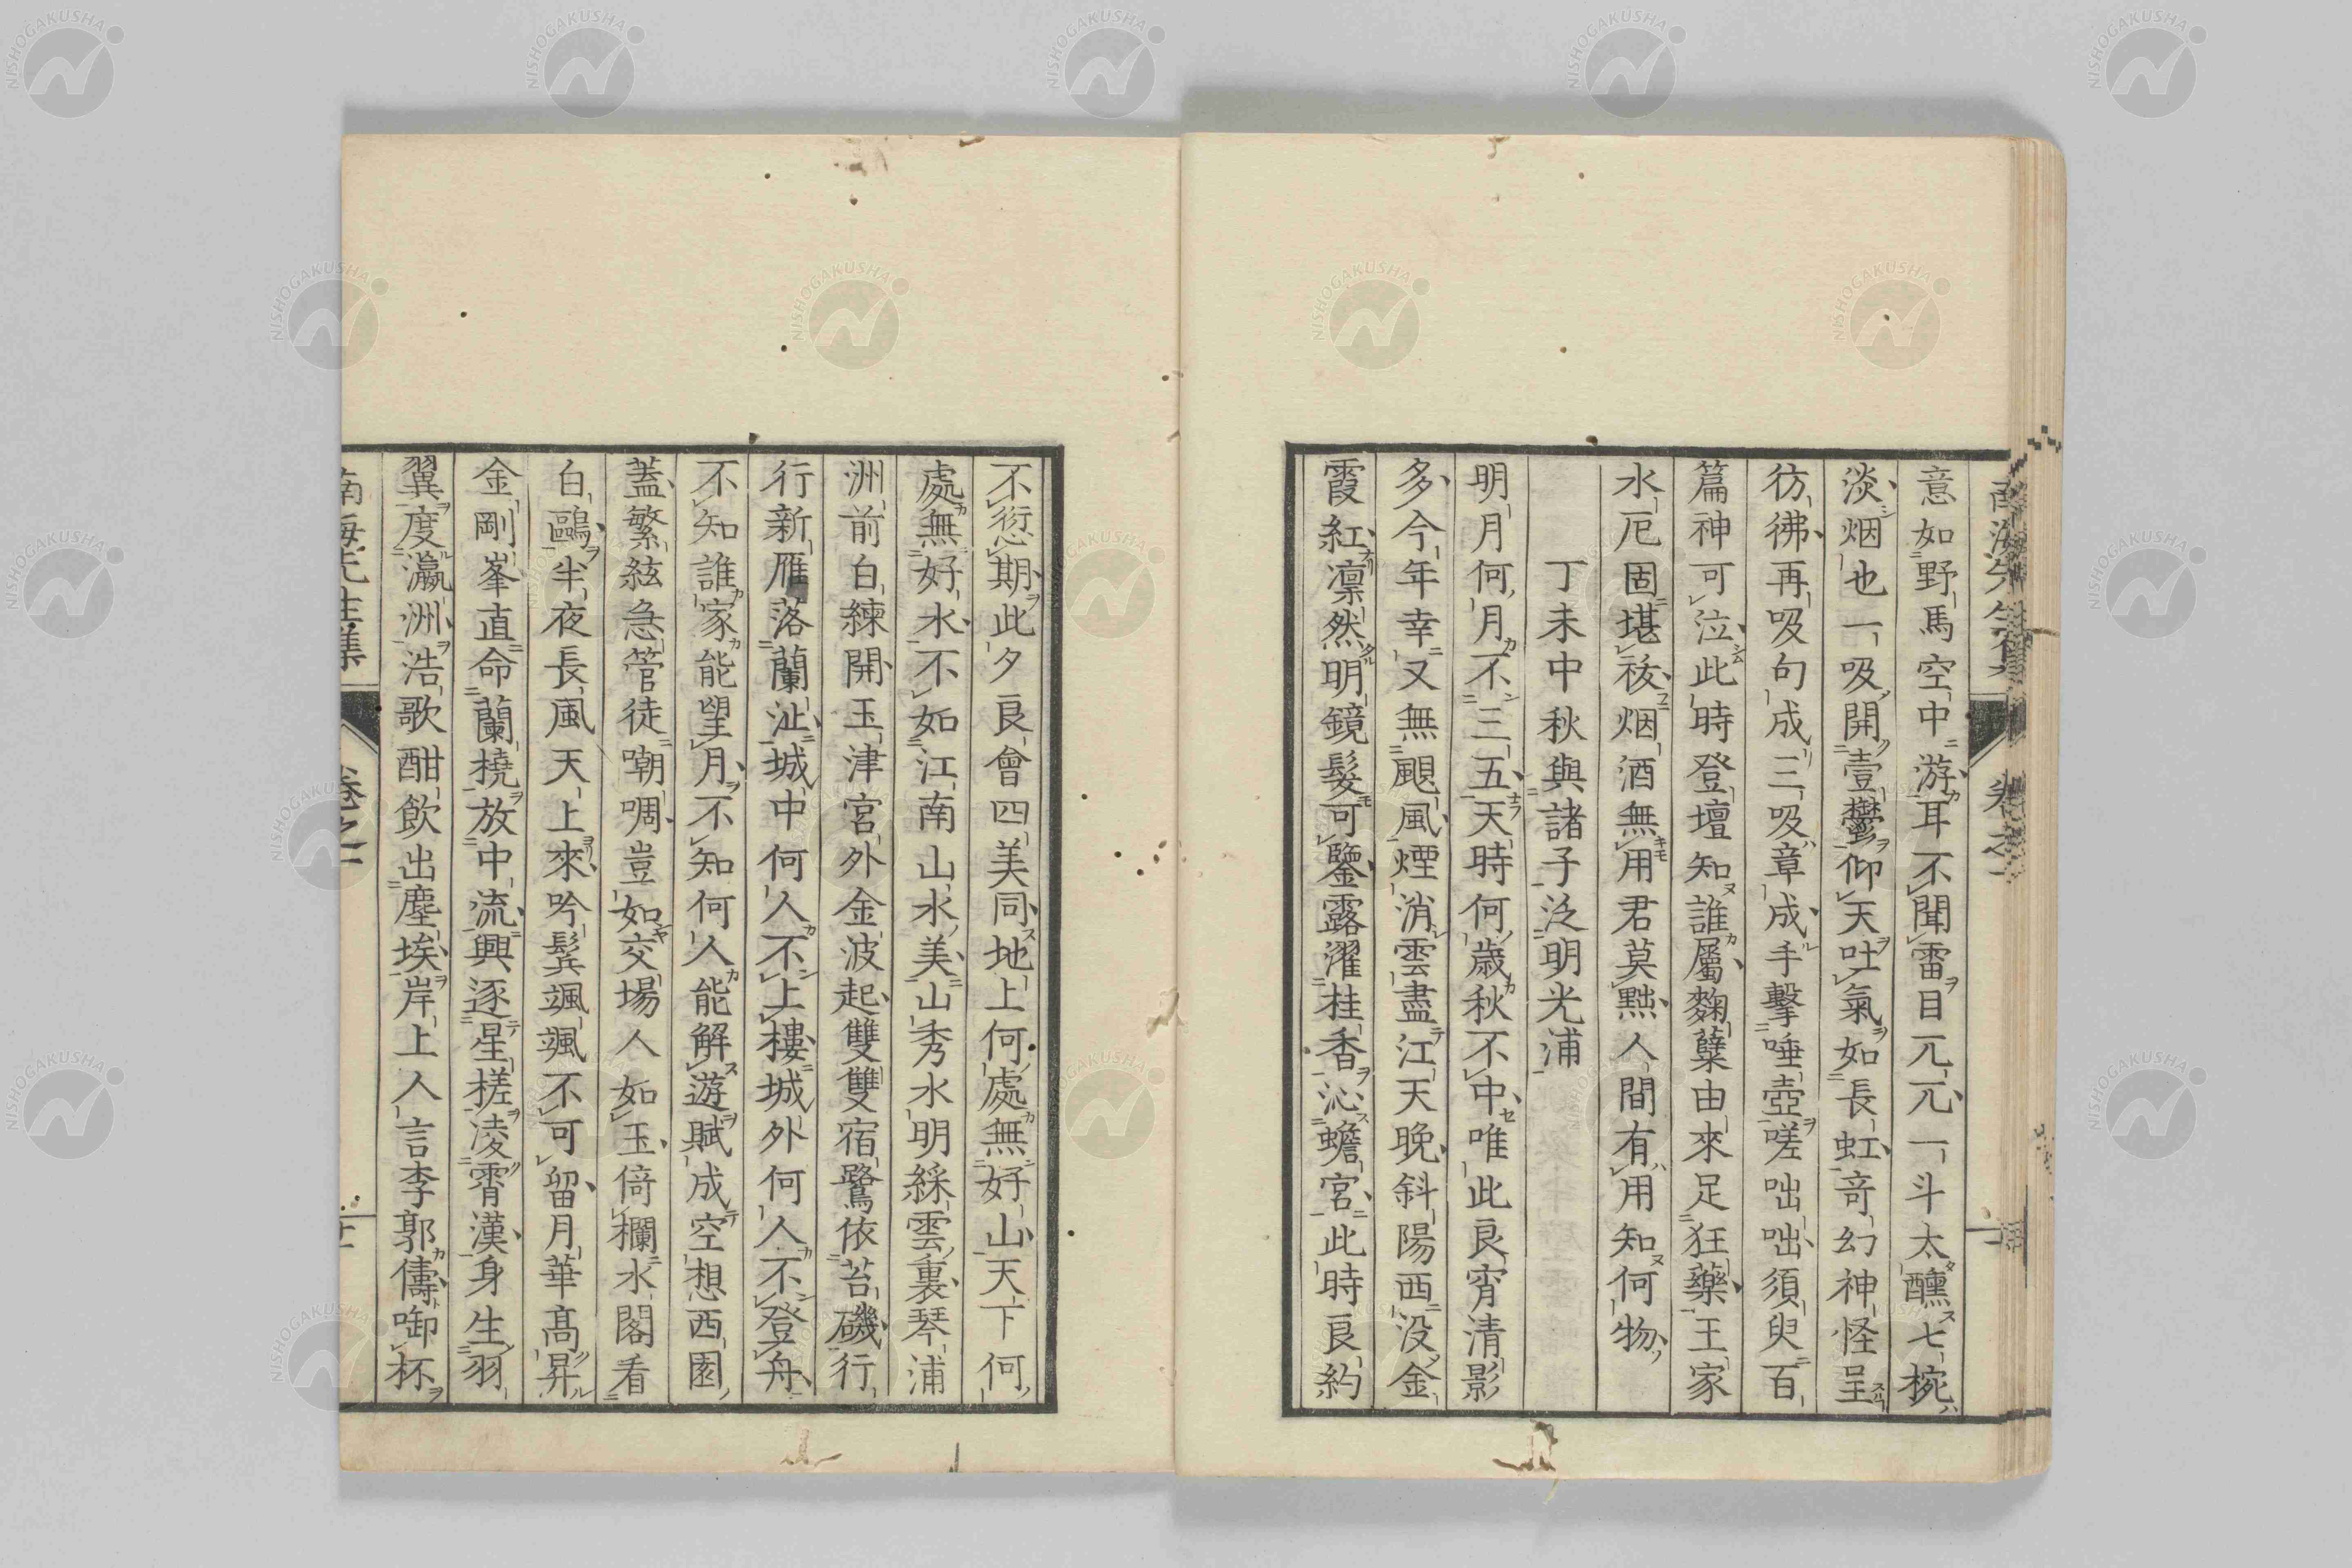 意如野馬空中游耳不聞雷目兀兀一斗太醺七椀
淡烟也一吸開壹鬱仰天吐氣如長虹奇幻神怪呈
彷彿再吸句成三吸章成手擊唾壺嗟咄咄須臾百
篇神可泣此時登壇知誰屬麴蘖由來足狂藥王家
水厄固堪祓烟酒無用君莫黜人間有用知何物
丁未中秋與諸子泛明光浦
明月何月不三五天時何歳秋不中唯此良宵清影
多今年幸又無颶風煙消雲盡江天晚斜陽西没金
霞紅凛然明鏡髮可鑒露濯桂香沁蟾宮此時良約
不愆期此夕良會四美同地上何處無好山天下何
處無好水不如江南山水美山秀水明綵雲裏琴浦
洲前白練開玉津宮外金波起雙雙宿鷺依苔磯行
行新雁落蘭沚城中何人不上樓城外何人不登舟
不知誰家能望月不知何人能解遊賦成空想西園
蓋繁絃急管徒嘲啁豈如交場人如玉倚欄水閣看
白鷗半夜長風天上來吟鬂颯颯不可留月華高昇
金剛峯直命蘭橈放中流興逐星槎凌霄漢身生羽
翼度瀛洲浩歌酣飲出塵埃岸上人言李郭儔啣杯
南海先生集
卷之二
NISHOGAKUSHA